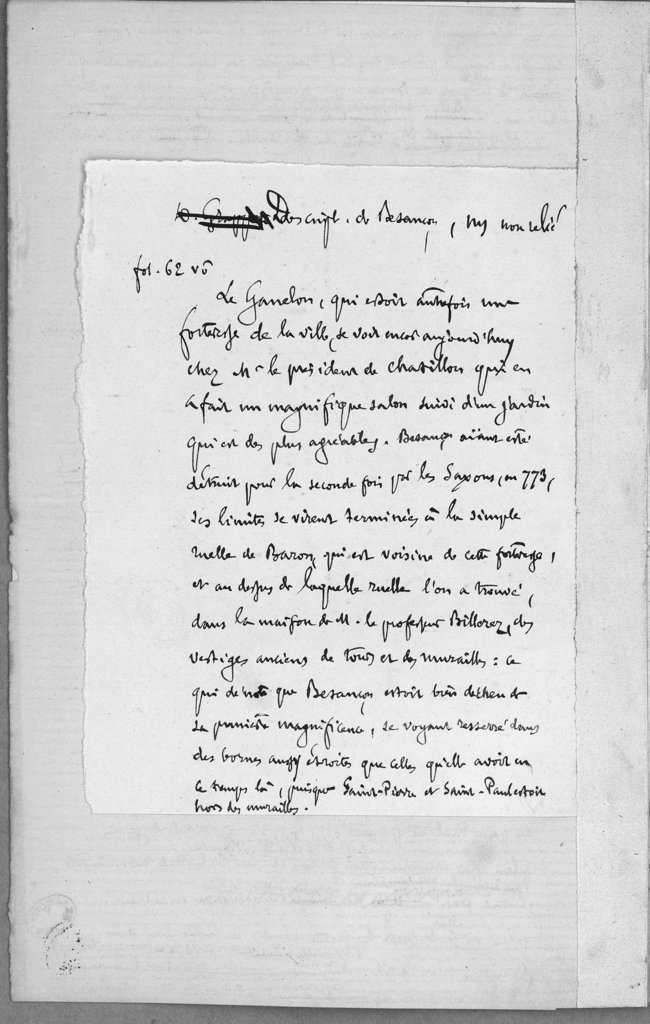 Descript. de Besançon, ms non relié
fol. 62 vo
Le Ganelon, qui estoit autrefois une
forteresse de la ville, se voit encor aujourd'huy
chez Mr le président de Chatillon qui en
a fait un magnifique salon suivi d'un jardin
qui est des plus agréables. Besançon aiant esté
détruit pour la seconde fois par les Saxons, en 773,
ses limites se virent terminées à la simple
ruelle de Baron qui est voisine de cette forteresse,
et au dessus de laquelle ruelle l'on a trouvé,
dans la maison de M. le professeur Billerez, des
vestiges anciens de tours et des murailles : ce
qui dénote que Besançon estoit bien décheu de
sa première magnificence, se voyant resserré dans
des bornes aussy étroites que celles qu'elle avoit en
ce temps là, puisque Saint-Pierre et Saint-Paul estoit
hors des murailles.